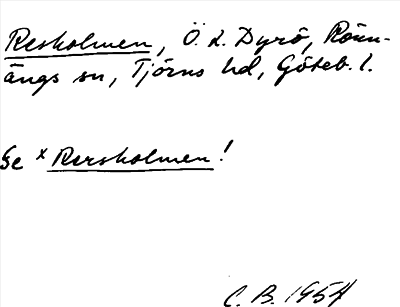 Resholmen, Ö. L. Dyrö, Rönn-
ängs sn, Tjörns hd, Göteb. l.
Se x Rersholmen!
C. B. 1954